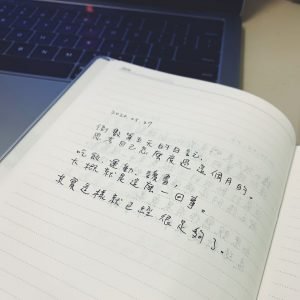 2020.03.27
倒數第五天的日記，
思考自己怎麼度過這個月的。
吃飯、運動、讀書，
大概就是這麼一回事。
其實這樣就已經很足夠了。